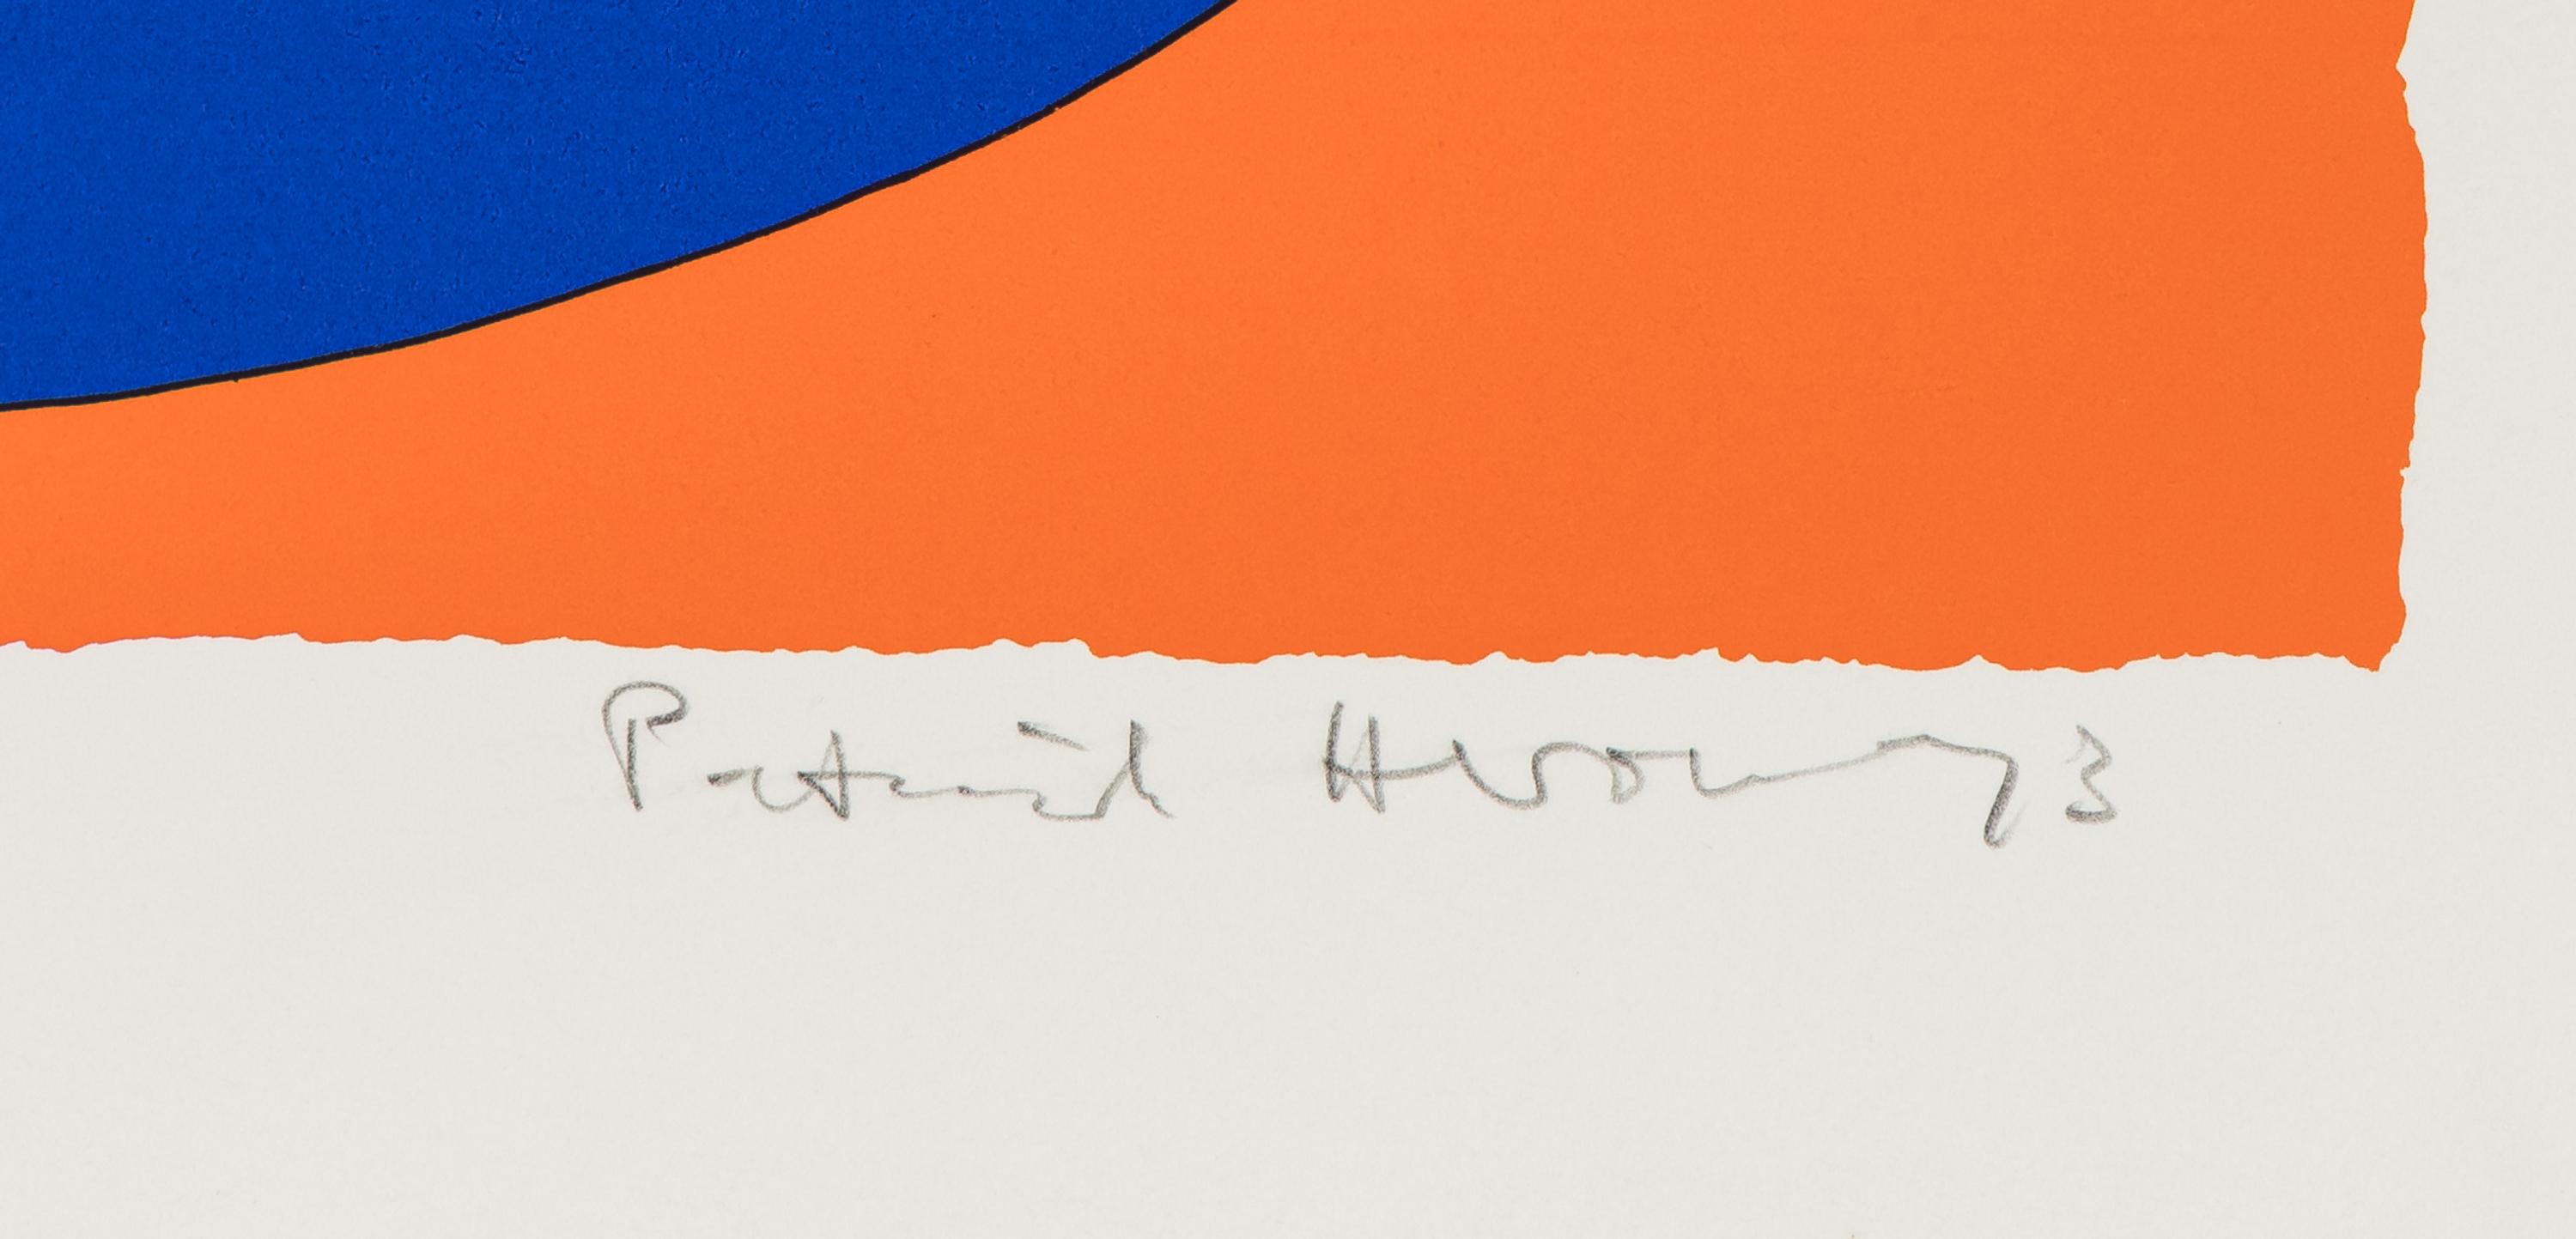 Patrick Heron 73